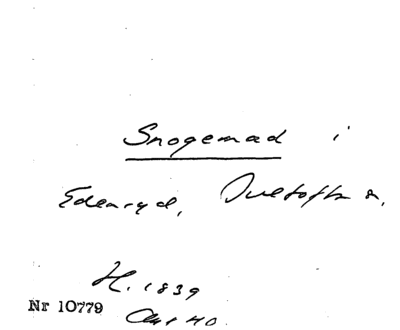 Snogemad i
Edenryd, Ivetofta sn,
H. 1839
Nr 10779
40.